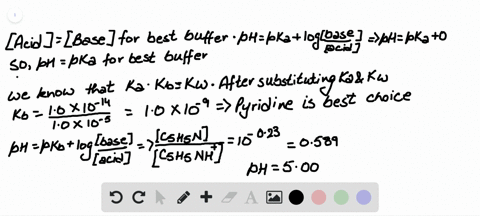 [Acid]=[Base] for best buffer · pH=pKa+log[base]/[acid] => pH=pKa+0
so, pH=pKa for best buffer
we know that Ka·Kb=Kw. After substituting Ka & Kw
Kb = 1.0 × 10^-14 / 1.0 × 10^-5 = 1.0 × 10^-9 => Pyridine is best choice
pH=pKb+log[base]/[acid] => [C5H5N]/[C5H5NH+] = 10^-0.23 = 0.589
pH = 5.00